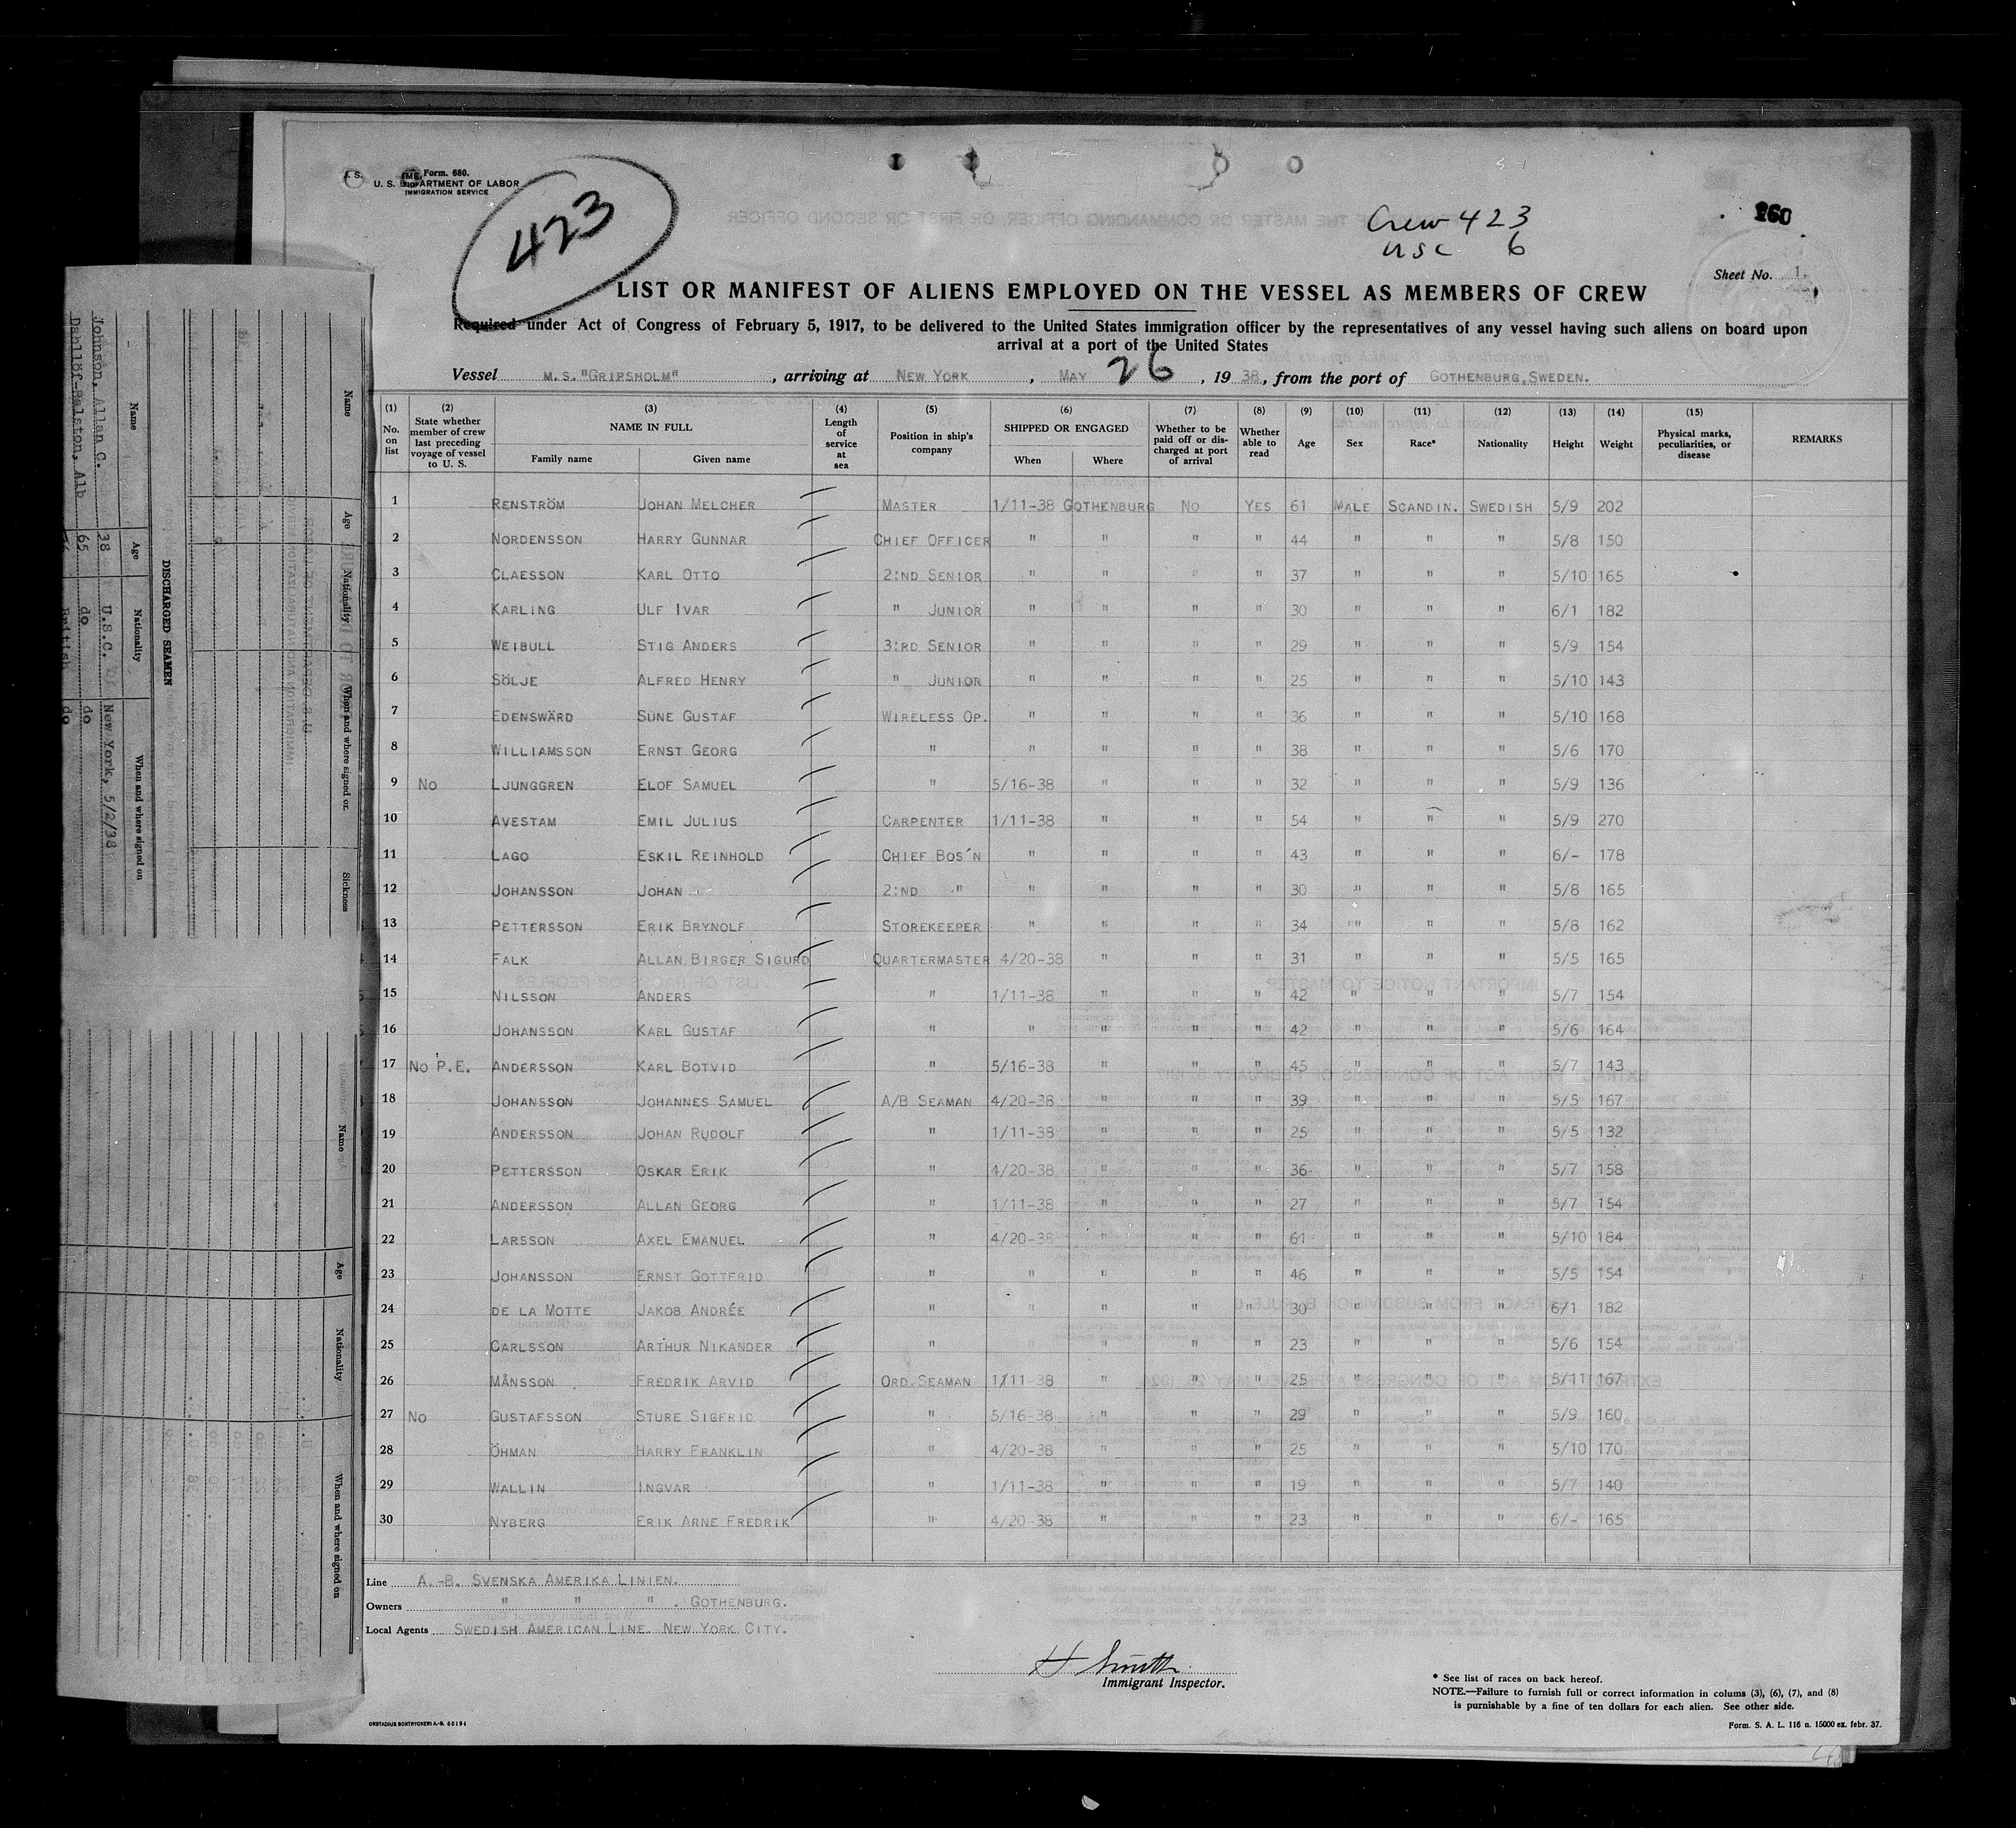 Form. 680.
U. S. DEPARTMENT OF LABOR
IMMIGRATION SERVICE
423
Crew 423
USC 6
260
Sheet No. 1.
LIST OR MANIFEST OF ALIENS EMPLOYED ON THE VESSEL AS MEMBERS OF CREW
Required under Act of Congress of February 5, 1917, to be delivered to the United States immigration officer by the representatives of any vessel having such aliens on board upon
arrival at a port of the United States
Vessel M.S. "GRIPSHOLM", arriving at NEW YORK, MAY 26, 1938, from the port of GOTHENBURG, SWEDEN.
(1) No. on list (2) State whether member of crew last preceding voyage of vessel to U. S. (3) NAME IN FULL Family name Given name (4) Length of service at sea (5) Position in ship's company (6) SHIPPED OR ENGAGED When Where (7) Whether to be paid off or discharged at port of arrival (8) Whether able to read (9) Age (10) Sex (11) Race* (12) Nationality (13) Height (14) Weight (15) Physical marks, peculiarities, or disease REMARKS
1 RENSTRÖM JOHAN MELCHER MASTER 1/11-38 GOTHENBURG NO YES 61 MALE SCANDIN. SWEDISH 5/9 202
2 NORDENSSON HARRY GUNNAR CHIEF OFFICER " " " " 44 " " " 5/8 150
3 CLAESSON KARL OTTO 2:ND SENIOR " " " " 37 " " " 5/10 165
4 KARLING ULF IVAR " JUNIOR " " " " 30 " " " 6/1 182
5 WEIBULL STIG ANDERS 3:RD SENIOR " " " " 29 " " " 5/9 154
6 SÖLJE ALFRED HENRY " JUNIOR " " " " 25 " " " 5/10 143
7 EDENSWÄRD SUNE GUSTAF WIRELESS OP. " " " " 36 " " " 5/10 168
8 WILLIAMSSON ERNST GEORG " " " " " 38 " " " 5/6 170
9 NO LJUNGGREN ELOF SAMUEL " 5/16-38 " " " 32 " " " 5/9 136
10 AVESTAM EMIL JULIUS CARPENTER 1/11-38 " " " 54 " " " 5/9 270
11 LAGO ESKIL REINHOLD CHIEF BOS'N " " " " 43 " " " 6/- 178
12 JOHANSSON JOHAN 2:ND " " " " " 30 " " " 5/8 165
13 PETTERSSON ERIK BRYNOLF STOREKEEPER " " " " 34 " " " 5/8 162
14 FALK ALLAN BIRGER SIGURD QUARTERMASTER 4/20-38 " " " 31 " " " 5/5 165
15 NILSSON ANDERS " 1/11-38 " " " 42 " " " 5/7 154
16 JOHANSSON KARL GUSTAF " " " " " 42 " " " 5/6 164
17 NO P.E. ANDERSSON KARL BOTVID " 5/16-38 " " " 45 " " " 5/7 143
18 JOHANSSON JOHANNES SAMUEL A/B SEAMAN 4/20-38 " " " 39 " " " 5/5 167
19 ANDERSSON JOHAN RUDOLF " 1/11-38 " " " 25 " " " 5/5 132
20 PETTERSSON OSKAR ERIK " 4/20-38 " " " 36 " " " 5/7 158
21 ANDERSSON ALLAN GEORG " 1/11-38 " " " 27 " " " 5/7 154
22 LARSSON AXEL EMANUEL " 4/20-38 " " " 61 " " " 5/10 184
23 JOHANSSON ERNST GOTTFRID " " " " " 46 " " " 5/5 154
24 DE LA MOTTE JAKOB ANDRÉE " " " " " 30 " " " 6/1 182
25 CARLSSON ARTHUR NIKANDER " " " " " 23 " " " 5/6 154
26 MÅNSSON FREDRIK ARVID ORD.SEAMAN 1/11-38 " " " 25 " " " 5/11 167
27 NO GUSTAFSSON STURE SIGFRID " 5/16-38 " " " 29 " " " 5/9 160
28 ÖHMAN HARRY FRANKLIN " 4/20-38 " " " 25 " " " 5/10 170
29 WALLIN INGVAR " 1/11-38 " " " 19 " " " 5/7 140
30 NYBERG ERIK ARNE FREDRIK " 4/20-38 " " " 23 " " " 6/- 165
Line A.-B. SVENSKA AMERIKA LINIEN.
Owners " " " . GOTHENBURG.
Local Agents SWEDISH AMERICAN LINE. NEW YORK CITY.
H Smith
Immigrant Inspector.
* See list of races on back hereof.
NOTE.—Failure to furnish full or correct information in colums (3), (6), (7), and (8)
is punishable by a fine of ten dollars for each alien. See other side.
ORSTADIUS BOKTRYCKERI A.-B. 60194
Form. S. A. L. 116 n. 15000 ex. febr. 37.
DISCHARGED SEAMEN
Name Age Nationality When and where signed on
Johnson, Allan C. 38 U.S.C. New York, 5/2/38
Dahllöf-Ralston, Alb 65 do do
British do
Name Age Nationality When and where signed or. Sickness
Name Age Nationality When and where signed on